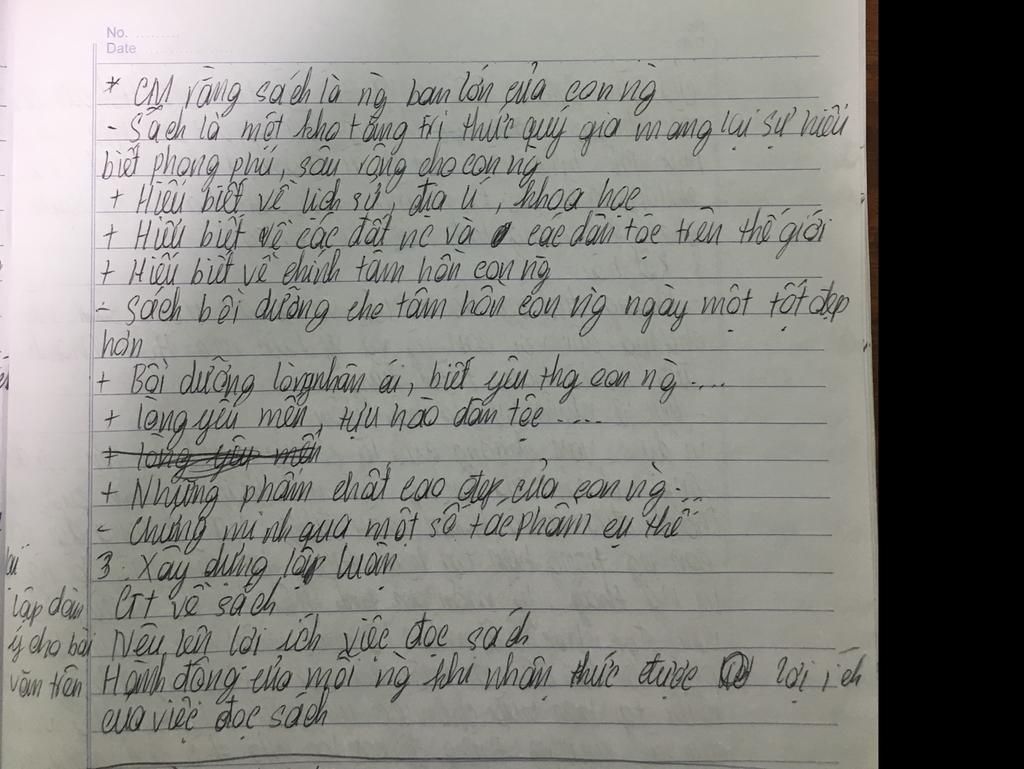 No. ..........
Date ....................
* CM rằng sách là ng bạn lớn của con ng
- Sách là một kho tàng tri thức quý gia mang lại sự hiểu
biết phong phú, sâu rộng cho con ng
+ Hiểu biết về lịch sử, địa lí, khoa học
+ Hiểu biết về các đất nc và các dân tộc trên thế giới
+ Hiểu biết về chính tâm hồn con ng
- Sách bồi dưỡng cho tâm hồn con ng ngày một tốt đẹp
hơn
+ Bồi dưỡng lòng nhân ái, biết yêu thg con ng ....
+ lòng yêu mến, tự hào dân tộc ....
+ lòng yêu mến
+ Những phẩm chất cao đẹp của con ng ...
- Chứng minh qua một số tác phẩm cụ thể
3. Xây dựng lập luận
lập dàn GT về sách
ý cho bài Nêu lên lợi ích việc đọc sách
văn trên Hành động của mỗi ng khi nhận thức được lợi ích
của việc đọc sách